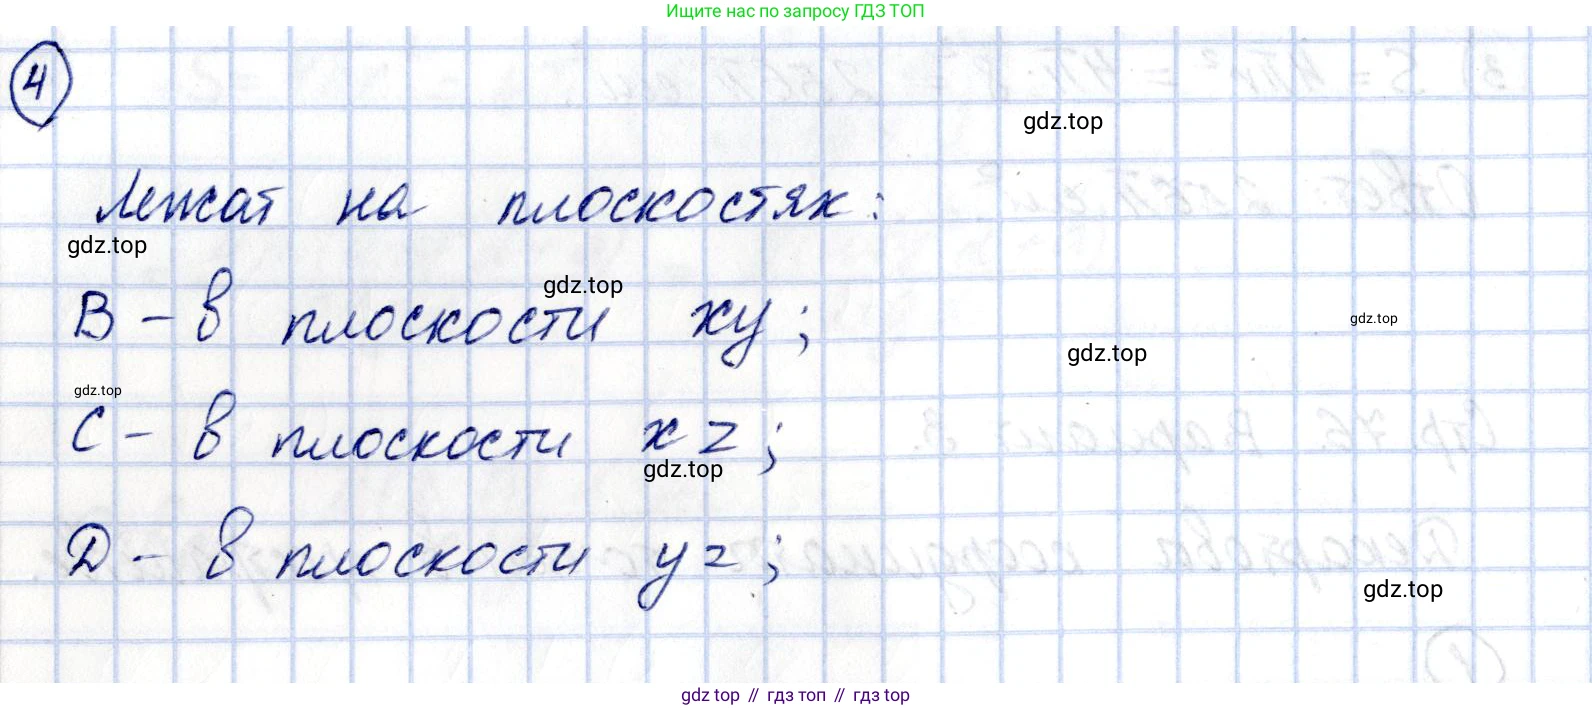 Ищите нас по запросу ГДЗ ТОП
4
gdz.top
Лежат на плоскостях:
gdz.top
gdz.top
В – в плоскости xy;
gdz.top
gdz.top
gdz.top
С – в плоскости xz;
gdz.top
D – в плоскости yz;
gdz.top
gdz top // гдз топ // гдз top